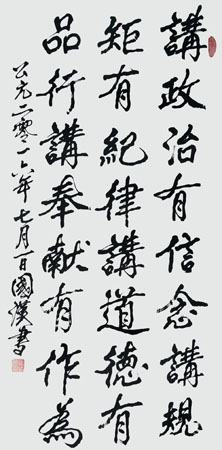 講政治有信念講規
矩有紀律講道德有
品行講奉献有作為
公元二零一六年七月一日國漢書